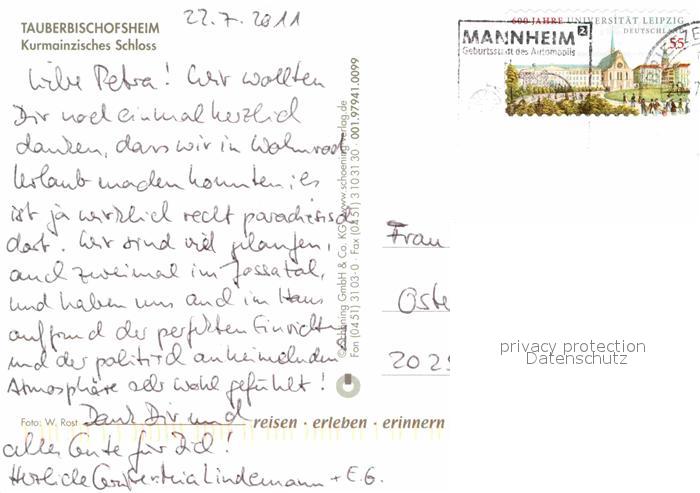 TAUBERBISCHOFSHEIM
Kurmainzisches Schloss
22.7.2011
600 JAHRE UNIVERSITÄT LEIPZIG
DEUTSCHLAND
55
MANNHEIM 2
Geburtsstadt des Automobils
Liebe Petra! Wir wollten
Dir noch einmal herzlich
danken, dass wir in
Urlaub machen konnten; es
ist ja wirklich recht paradiesisch
dort. Wir sind viel gelaufen,
auch zweimal im Jossatal,
und haben uns auch im Haus
aufgrund der perfekten Einrichtung
und der politisch anheimelnden
Atmosphäre sehr wohl gefühlt!
Dank Dir und
alles Gute für Dich!
Herzliche Grüße Mia Lindemann + E.G.
Foto: W. Rost
reisen · erleben · erinnern
© Schöning GmbH & Co. KG · www.schoening-verlag.de
Fon (04 51) 31 03-0 · Fax (04 51) 3 10 31 30 · 001.97941.0099
Frau
Oste
202
privacy protection
Datenschutz